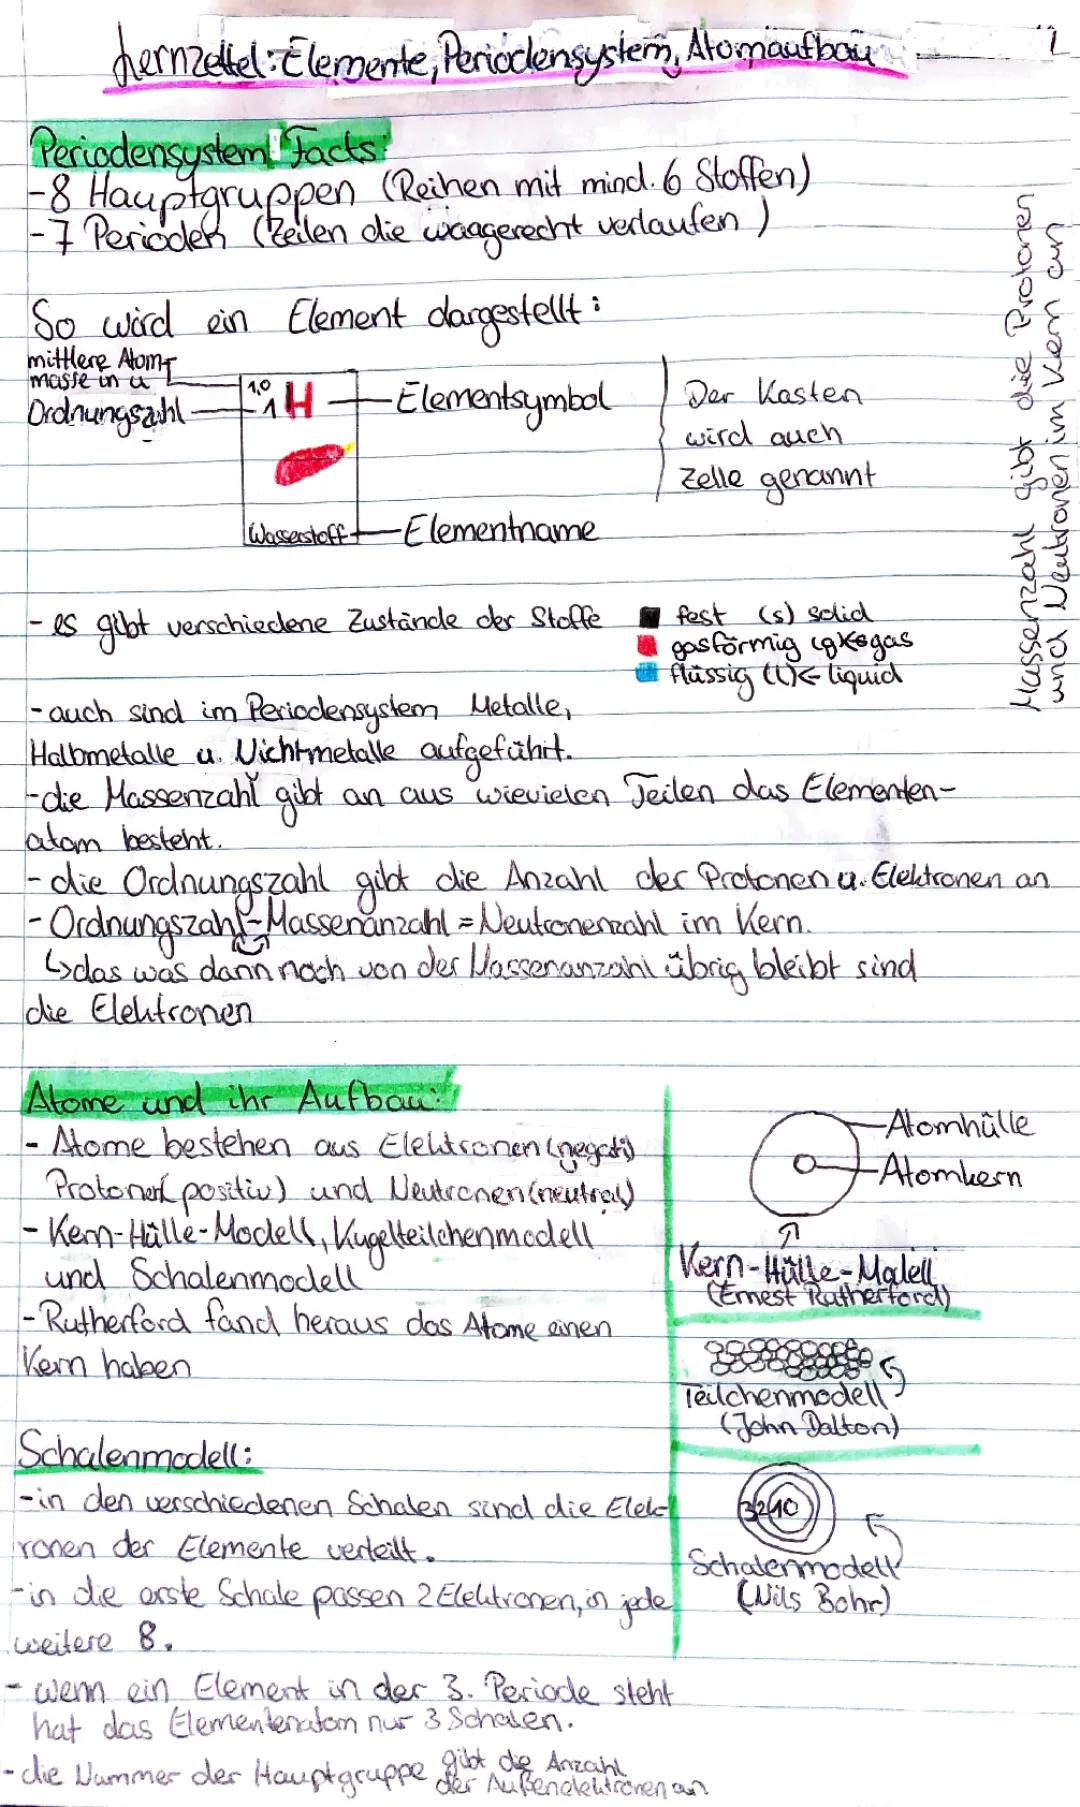 Lernzettel: Elemente, Periodensystem, Atomaufbau
1
Periodensystem Facts:
-8 Hauptgruppen (Reihen mit mind. 6 Stoffen)
-7 Perioden (Zeilen die waagerecht verlaufen)
So wird ein Element dargestellt:
mittlere Atom-
masse in u
Ordnungszahl
1,0
1 H
Elementsymbol
Wasserstoff
Elementname
Der Kasten
wird auch
Zelle genannt
Massenzahl gibt die Protonen
und Neutronen im Kern an
- es gibt verschiedene Zustände der Stoffe
fest (s) solid
gasförmig (g)←gas
flüssig (l)← liquid
- auch sind im Periodensystem Metalle,
Halbmetalle u. Nichtmetalle aufgeführt.
-die Massenzahl gibt an aus wievielen Teilen das Elementen-
atom besteht.
- die Ordnungszahl gibt die Anzahl der Protonen u. Elektronen an
- Ordnungszahl-Massenanzahl = Neutronenzahl im Kern.
↳das was dann noch von der Massenanzahl übrig bleibt sind
die Elektronen
Atome und ihr Aufbau:
- Atome bestehen aus Elektronen (negativ)
Protonen (positiv) und Neutronen (neutral)
- Kern-Hülle-Modell, Kugelteilchenmodell
und Schalenmodell
- Rutherford fand heraus das Atome einen
Kern haben
Atomhülle
Atomkern
Kern-Hülle-Modell
(Ernest Rutherford)
Teilchenmodell
(John Dalton)
3210
Schalenmodell
(Nils Bohr)
Schalenmodell:
-in den verschiedenen Schalen sind die Elek-
ronen der Elemente verteilt.
-in die erste Schale passen 2 Elektronen, in jede
weitere 8.
- wenn ein Element in der 3. Periode steht
hat das Elementenatom nur 3 Schalen.
- die Nummer der Hauptgruppe gibt die Anzahl
der Außenelektronen an